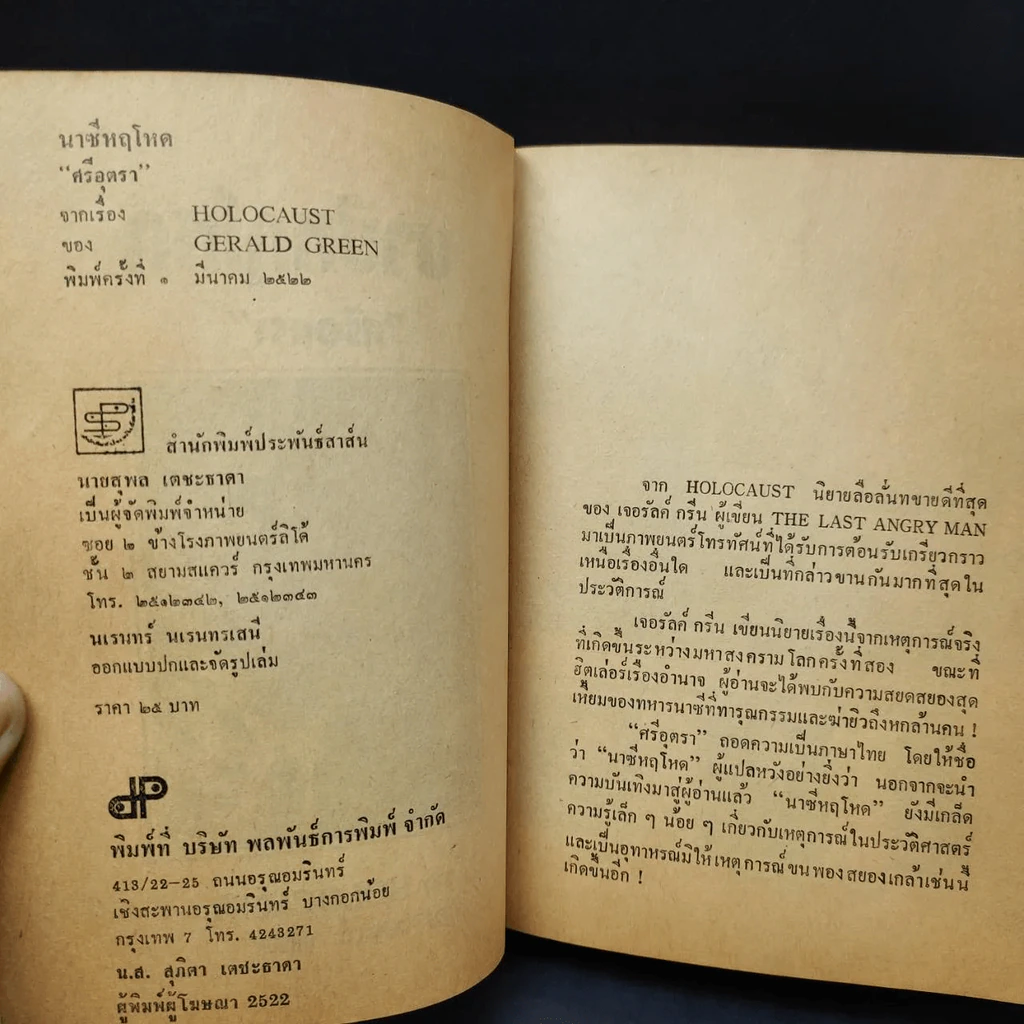 นาซีหฤโหด
“ศรีอุตรา”
จากเรื่อง HOLOCAUST
ของ GERALD GREEN
พิมพ์ครั้งที่ ๑ มีนาคม ๒๕๒๒
สำนักพิมพ์ประพันธ์สาส์น
นายสุพล เตชะธาดา
เป็นผู้จัดพิมพ์จำหน่าย
ซอย ๒ ข้างโรงภาพยนตร์ลิโด้
ชั้น ๒ สยามสแควร์ กรุงเทพมหานคร
โทร. ๒๕๑๒๓๔๒, ๒๕๑๒๓๔๓
นเรนทร์ นเรนทรเสนี
ออกแบบปกและจัดรูปเล่ม
ราคา ๒๕ บาท
dP
พิมพ์ที่ บริษัท พลพันธ์การพิมพ์ จำกัด
413/22-25 ถนนอรุณอมรินทร์
เชิงสะพานอรุณอมรินทร์ บางกอกน้อย
กรุงเทพ 7 โทร. 4243271
น.ส. สุภิตา เตชะธาดา
ผู้พิมพ์ผู้โฆษณา 2522
จาก HOLOCAUST นิยายลือลั่นทขายดีที่สุด
ของ เจอรัลค์ กรีน ผู้เขียน THE LAST ANGRY MAN
มาเป็นภาพยนตร์โทรทัศน์ที่ได้รับการต้อนรับเกรียวกราว
เหนือเรื่องอื่นใด และเป็นที่กล่าวขานกันมากที่สุดใน
ประวัติการณ์
เจอรัลค์ กรีน เขียนนิยายเรื่องนี้จากเหตุการณ์จริง
ที่เกิดขึ้นระหว่างมหาสงครามโลกครั้งที่สอง ขณะที่
ฮิตเล่อร์เรืองอำนาจ ผู้อ่านจะได้พบกับความสยดสยองสุด
เหี้ยมของทหารนาซีที่ทารุณกรรมและฆ่ายิวถึงหกล้านคน !
“ศรีอุตรา” ถอดความเป็นภาษาไทย โดยให้ชื่อ
ว่า “นาซีหฤโหด” ผู้แปลหวังอย่างยิ่งว่า นอกจากจะนำ
ความบันเทิงมาสู่ผู้อ่านแล้ว “นาซีหฤโหด” ยังมีเกล็ด
ความรู้เล็ก ๆ น้อย ๆ เกี่ยวกับเหตุการณ์ในประวัติศาสตร์
และเป็นอุทาหรณ์มิให้เหตุการณ์ขนพองสยองเกล้าเช่นนี้
เกิดขึ้นอีก !